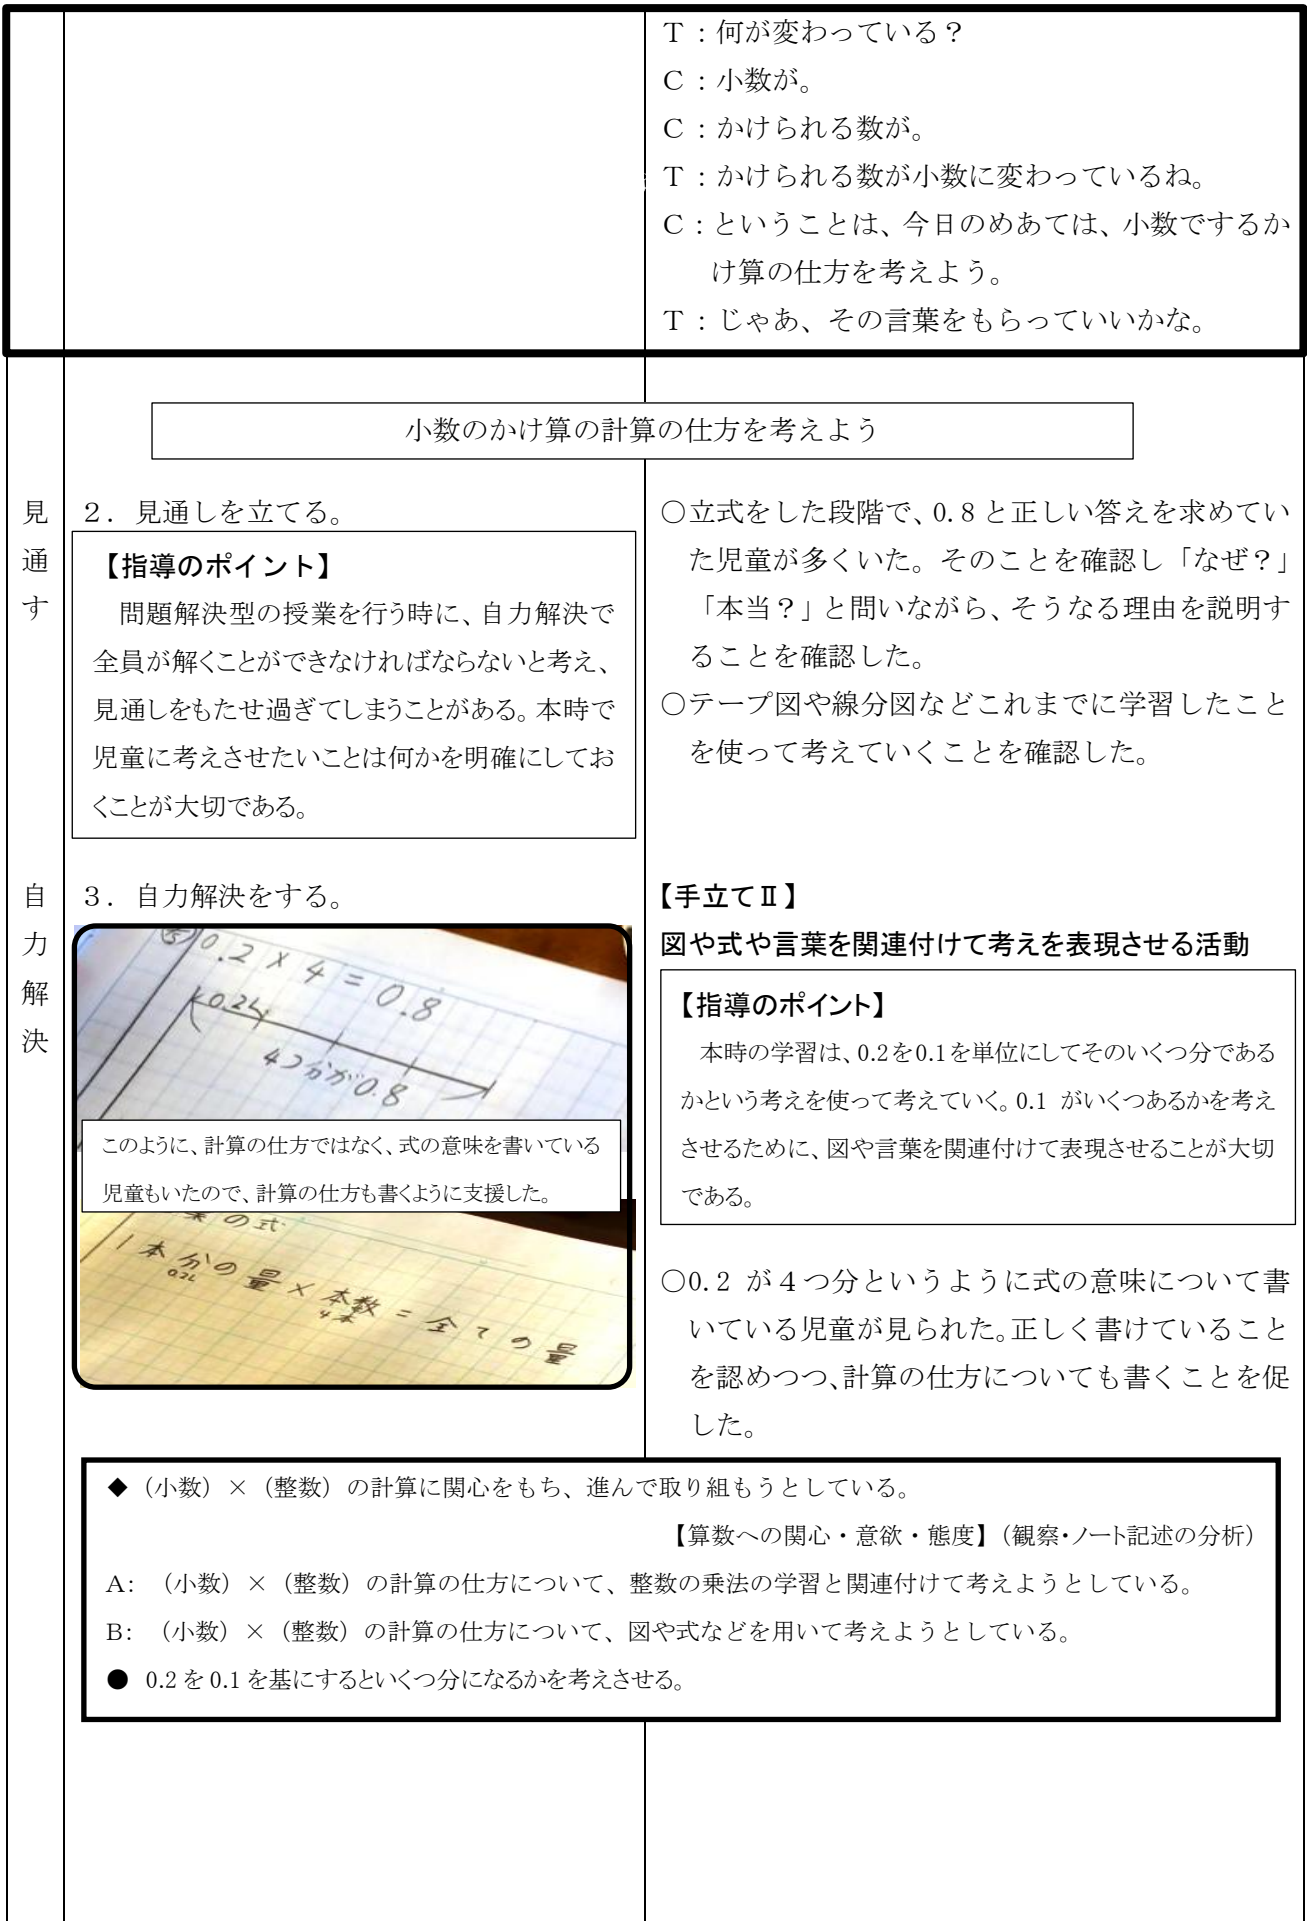 T：何が変わっている？
C：小数が。
C：かけられる数が。
T：かけられる数が小数に変わっているね。
C：ということは、今日のめあては、小数でするか
け算の仕方を考えよう。
T：じゃあ、その言葉をもらっていいかな。
小数のかけ算の計算の仕方を考えよう
見通す
２．見通しを立てる。
【指導のポイント】
問題解決型の授業を行う時に、自力解決で
全員が解くことができなければならないと考え、
見通しをもたせ過ぎてしまうことがある。本時で
児童に考えさせたいことは何かを明確にしてお
くことが大切である。
○立式をした段階で、0.8と正しい答えを求めてい
た児童が多くいた。そのことを確認し「なぜ？」
「本当？」と問いながら、そうなる理由を説明す
ることを確認した。
○テープ図や線分図などこれまでに学習したこと
を使って考えていくことを確認した。
自力解決
３．自力解決をする。
0.2×4＝0.8
0.2L
4つ分が0.8
このように、計算の仕方ではなく、式の意味を書いている
児童もいたので、計算の仕方も書くように支援した。
葉の式
1本分の量×本数＝全ての量
0.2L 4本
【手立てⅡ】
図や式や言葉を関連付けて考えを表現させる活動
【指導のポイント】
本時の学習は、0.2を0.1を単位にしてそのいくつ分である
かという考えを使って考えていく。0.1 がいくつあるかを考え
させるために、図や言葉を関連付けて表現させることが大切
である。
○0.2 が４つ分というように式の意味について書
いている児童が見られた。正しく書けていること
を認めつつ、計算の仕方についても書くことを促
した。
◆（小数）×（整数）の計算に関心をもち、進んで取り組もうとしている。
【算数への関心・意欲・態度】（観察・ノート記述の分析）
A：（小数）×（整数）の計算の仕方について、整数の乗法の学習と関連付けて考えようとしている。
B：（小数）×（整数）の計算の仕方について、図や式などを用いて考えようとしている。
● 0.2を0.1を基にするといくつ分になるかを考えさせる。